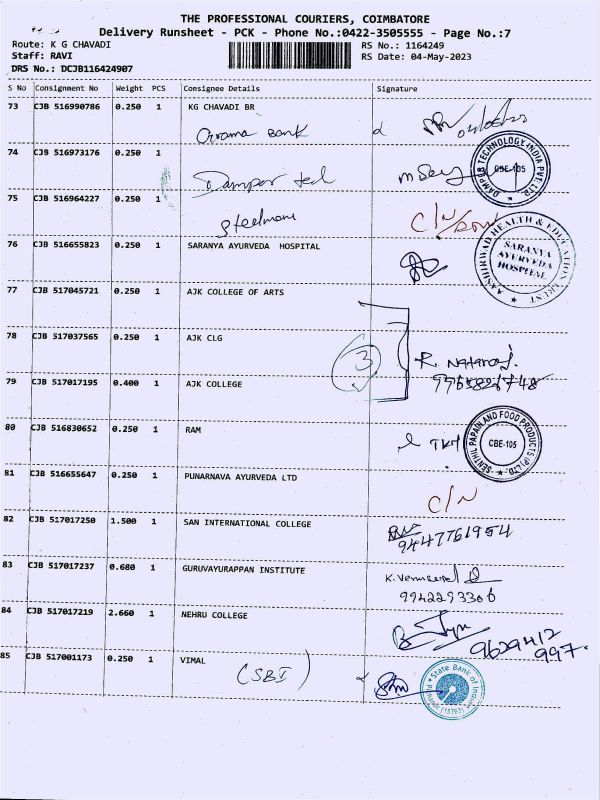 THE PROFESSIONAL COURIERS, COIMBATORE
Delivery Runsheet - PCK - Phone No.:0422-3505555 - Page No.:7
Route: K G CHAVADI
RS No.: 1164249
Staff: RAVI
RS Date: 04-May-2023
DRS No.: DCJB116424907
S No Consignment No Weight PCS Consignee Details Signature
73 CJB 516990786 0.250 1 KG CHAVADI BR
Bank
74 CJB 516973176 0.250 1
DAMPAR TECHNOLOGY INDIA PVT. LTD.
CBE-105
75 CJB 516964227 0.250 1
C/N
76 CJB 516655823 0.250 1 SARANYA AYURVEDA HOSPITAL
AASHIRWAD HEALTH & EDUCATION TRUST
SARANYA
AYURVEDA
HOSPITAL
77 CJB 517045721 0.250 1 AJK COLLEGE OF ARTS
78 CJB 517037565 0.250 1 AJK CLG
3
R. Nataraj.
79 CJB 517017195 0.400 1 AJK COLLEGE
80 CJB 516830652 0.250 1 RAM
SENTHIL PAPAIN AND FOOD PRODUCTS (P) LTD.
CBE-105
81 CJB 516655647 0.250 1 PUNARNAVA AYURVEDA LTD
C/N
82 CJB 517017250 1.500 1 SAN INTERNATIONAL COLLEGE
9447761954
83 CJB 517017237 0.680 1 GURUVAYURAPPAN INSTITUTE
9942293306
84 CJB 517017219 2.660 1 NEHRU COLLEGE
9629412
997.
85 CJB 517001173 0.250 1 VIMAL
(SBI)
State Bank of India